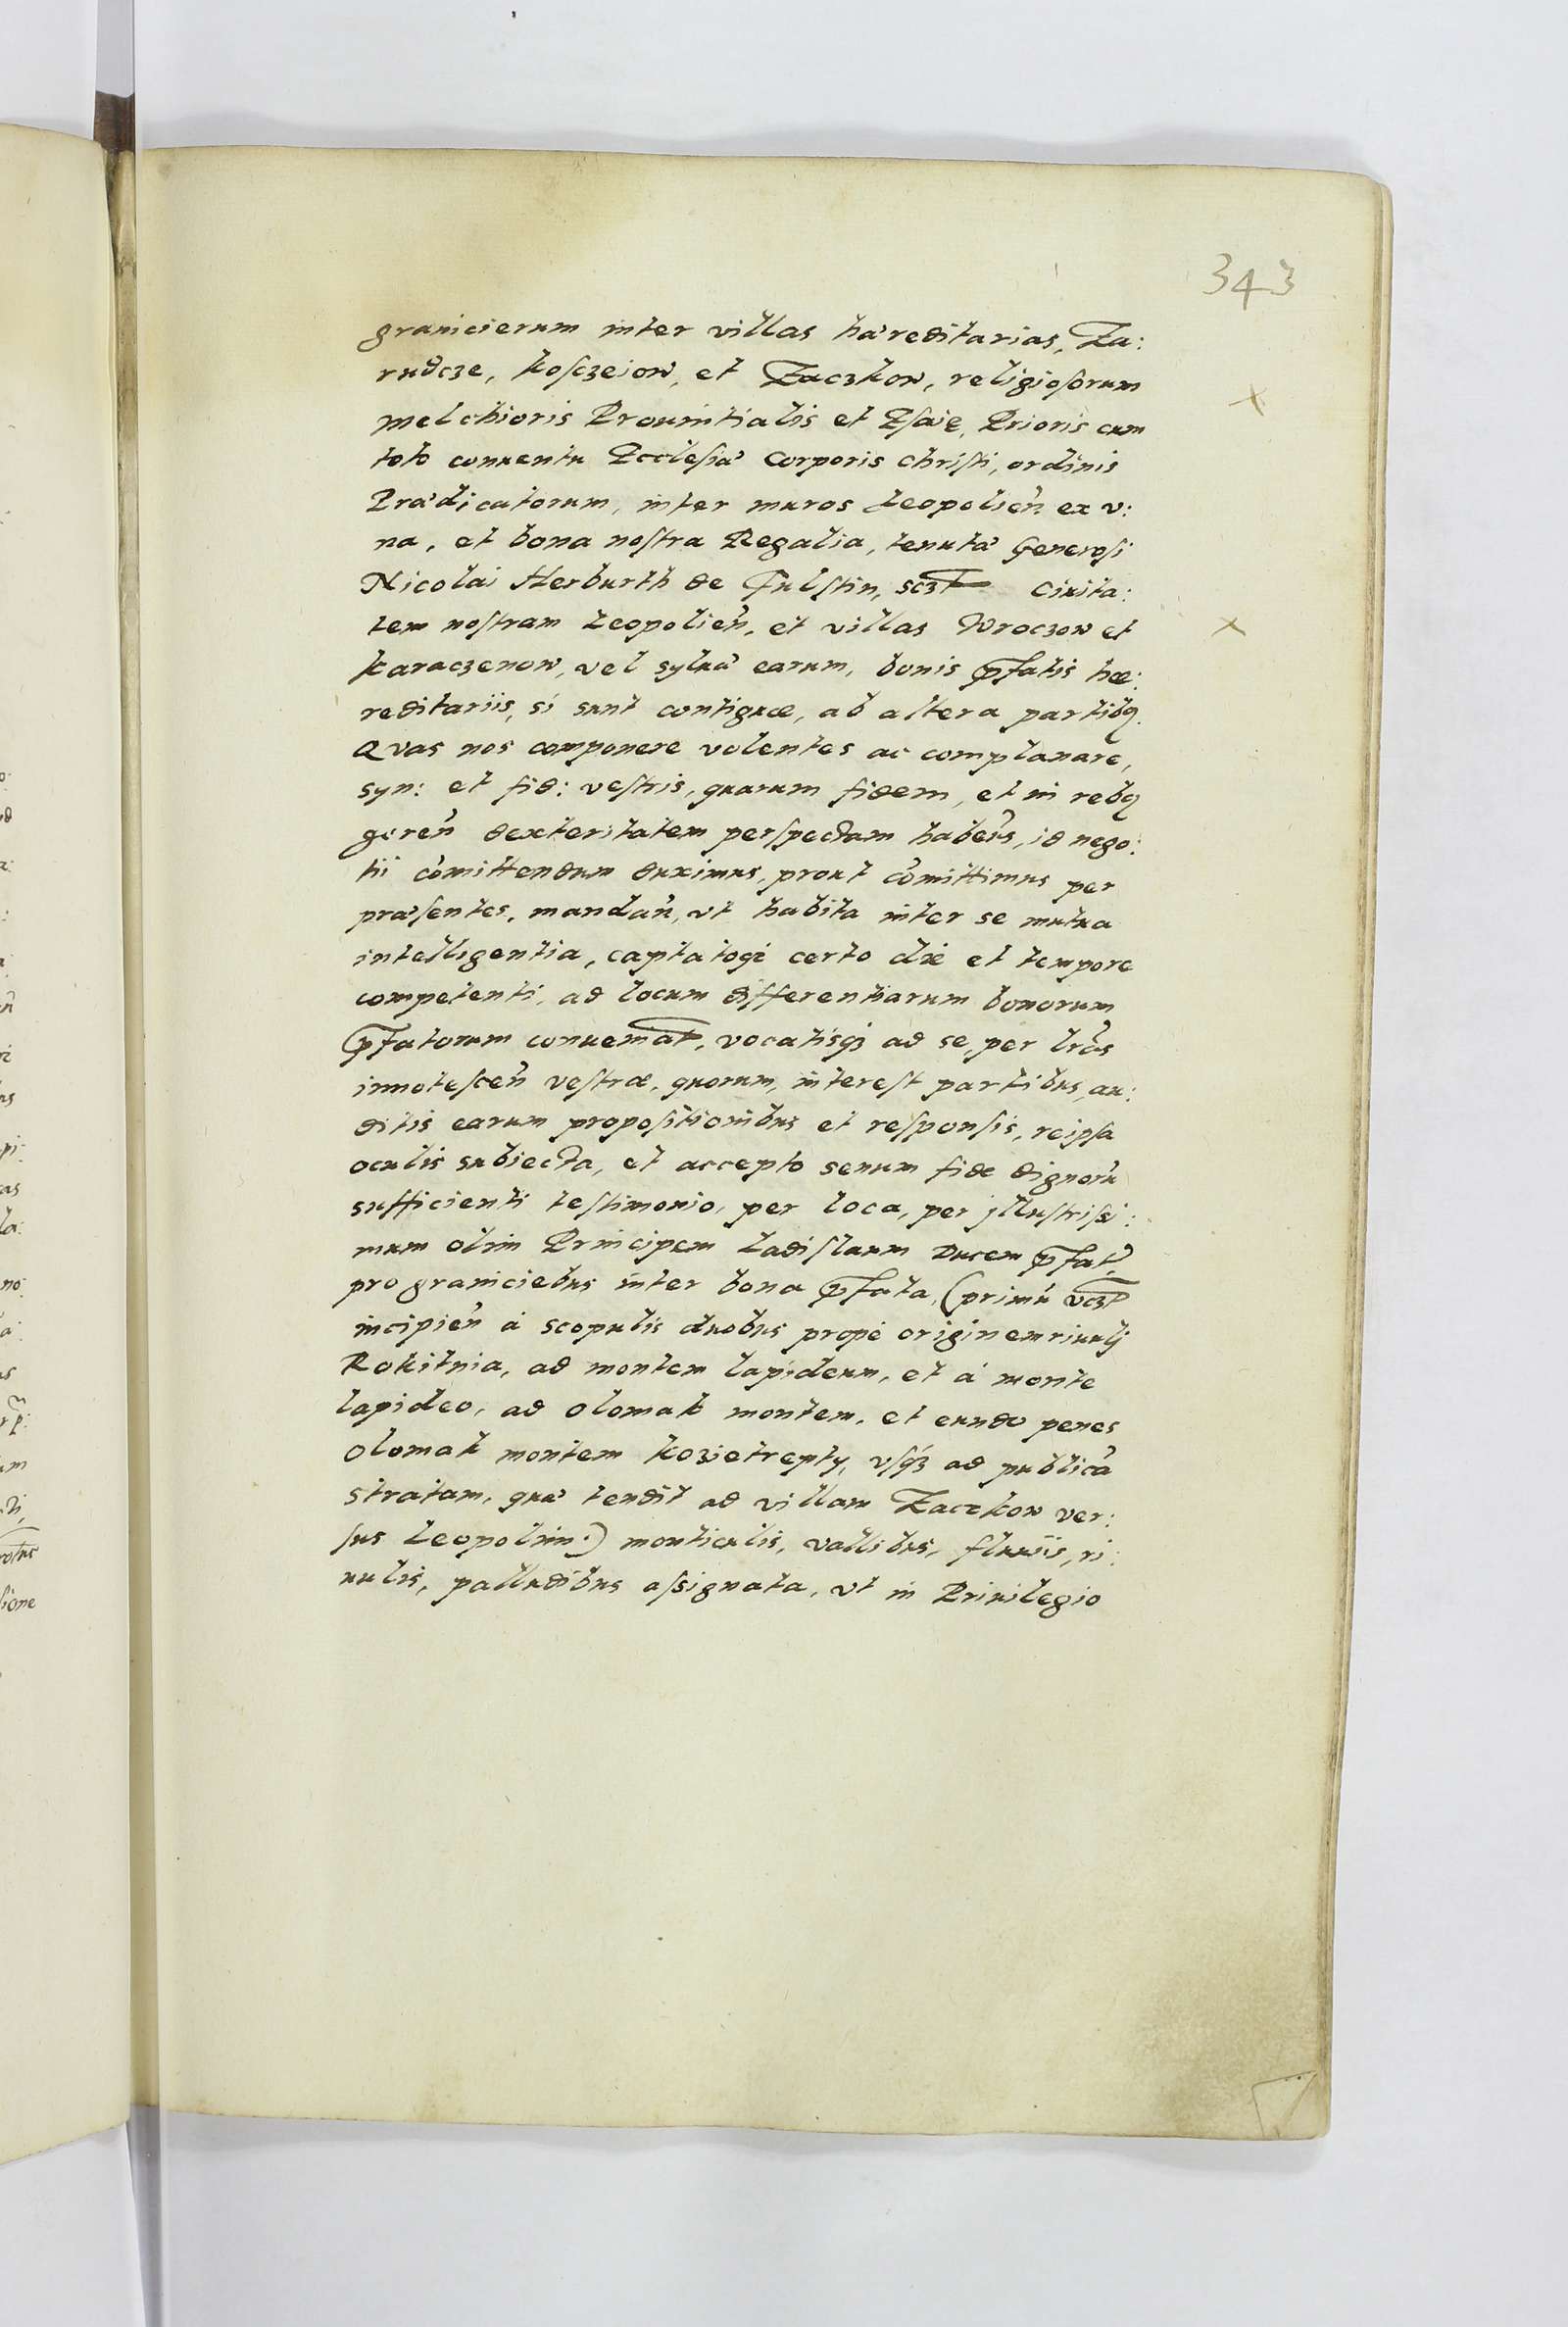 343
granicierum inter villas hæreditarias, Za:
rudcze, koſczeiow, et Zaczkow, religioſorum
Melchioris Prouintialis et Eſaię, Prioris cum
toto conuentu Eccleſiæ Corporis Chriſti, ordinis
Prædicatorum, inter muros Leopolien̄ ex v:
na, et bona noſtra Regalia, tenutæ Generoſi
Nicolai Herburth de Fulſtin, sczt Ciuita:
tem noſtram Leopolien̄, et villas Wroczow et
karaczenow, vel syluæ earum, bonis p̄fatis hæ:
reditariis, si sunt contiguæ, ab altera partibq
Quas nos componere volentes ac complanare,
syn: et fid: veſtris, quarum fidem, et in rebq
geren̄ dexteritatem perſpectam haben̄s, id nego:
tii com̄ittendum duximus, prout com̄ittimus per
præſentes, mandan̄, vt habita inter se mutua
intelligentia, captatoq; certo die et tempore
competenti, ad locum differentiarum bonorum
p̄fatorum conueniat, vocatisq; ad se, per lr̄as
innoteſcen̄ veſtræ, quorum, intereſt partibus, au:
ditis earum propoſitionibus et reſponſis, reipſa
oculis subiecta, et accepto senum fide dignorū
sufficienti teſtimonio, per loca, per jlluſtriſsi:
mum olim Principem Ladiſlaum Ducem p̄fat̄,
pro graniciebus inter bona p̄fata, (primū vczt
incipien̄ à scopulis duobus propè originem riuulj
Rokitnia, ad montem lapideum, et à monte
lapideo, ad olomak montem, et eundo penes
olomak montem kozietrepty, vſq; ad publicā
stratam, quæ tendit ad villam Zaczkow ver:
ſus Leopolim.) monticulis, vallibus, fluuiis, ri:
uulis, palludibus aſsignata, vt in Priuilegio